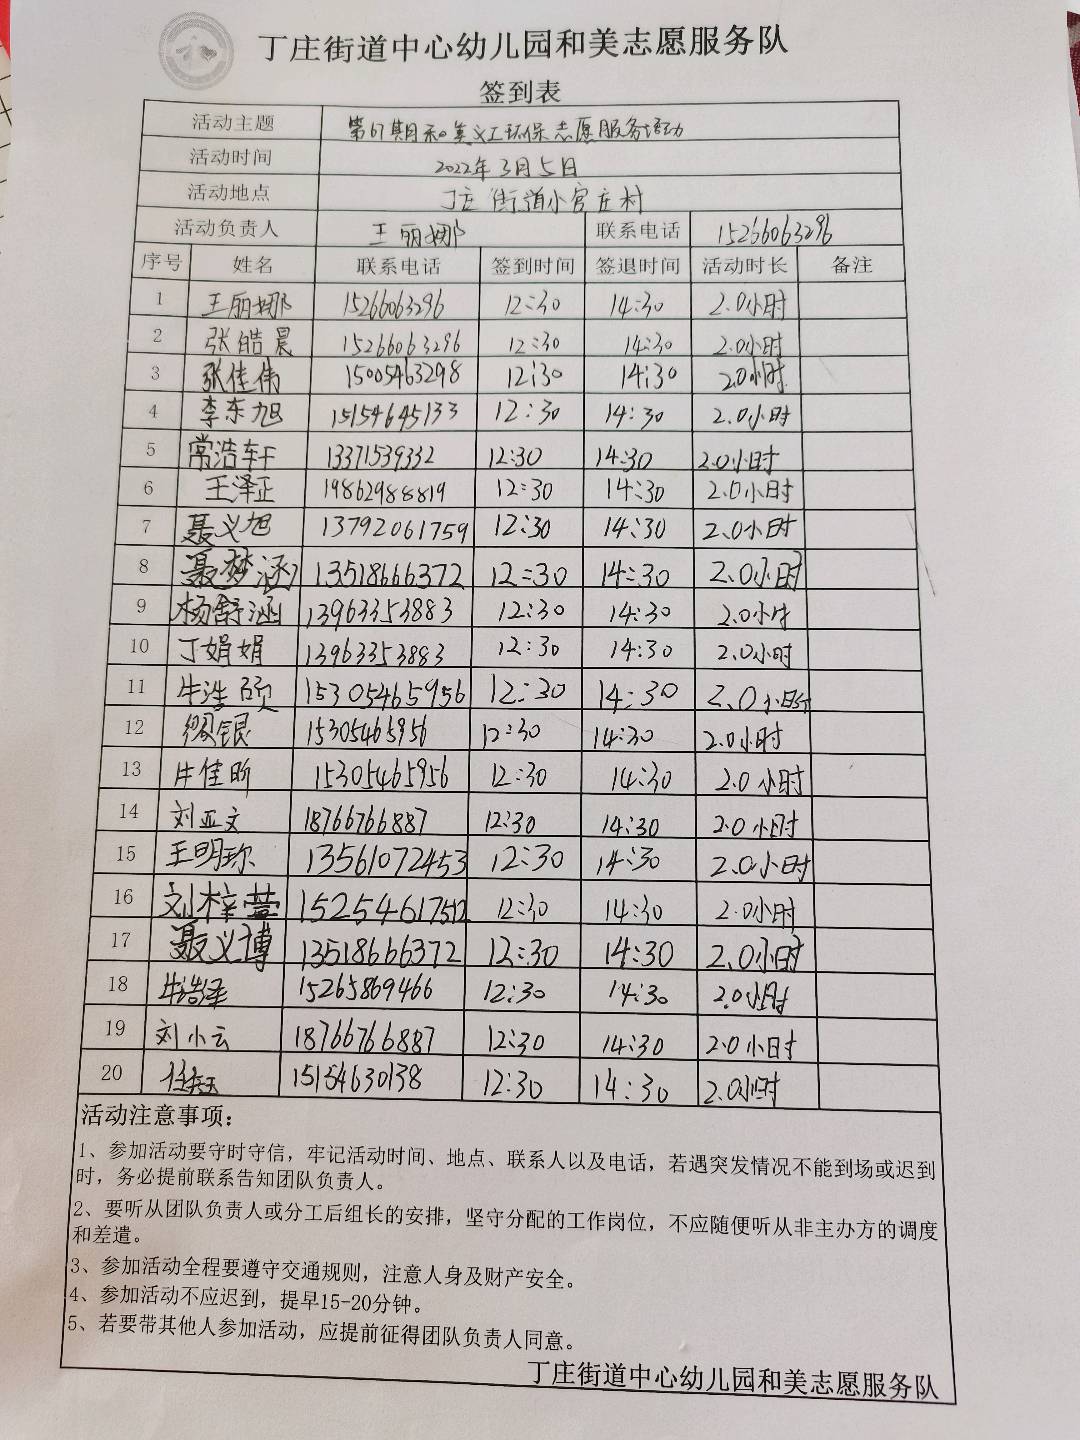 丁庄街道中心幼儿园和美志愿服务队
签到表
活动主题 第67期和美义工环保志愿服务活动
活动时间 2022年3月5日
活动地点 丁庄街道小官庄村
活动负责人 王丽娜 联系电话 15266063296
序号 姓名 联系电话 签到时间 签退时间 活动时长 备注
1 王丽娜 15266063296 12:30 14:30 2.0小时
2 张皓晨 15266063296 12:30 14:30 2.0小时
3 张佳伟 15005463298 12:30 14:30 2.0小时
4 李东旭 15154645133 12:30 14:30 2.0小时
5 常浩轩 13371539332 12:30 14:30 2.0小时
6 王泽正 19862988819 12:30 14:30 2.0小时
7 聂义旭 13792061759 12:30 14:30 2.0小时
8 聂梦涵 13518666372 12:30 14:30 2.0小时
9 杨舒涵 13963353883 12:30 14:30 2.0小时
10 丁娟娟 13963353883 12:30 14:30 2.0小时
11 牛浩硕 15305465956 12:30 14:30 2.0小时
12 银 15305465956 12:30 14:30 2.0小时
13 牛佳昕 15305465956 12:30 14:30 2.0小时
14 刘亚文 18766766887 12:30 14:30 2.0小时
15 王明珍 13561072453 12:30 14:30 2.0小时
16 刘梓萱 15254617512 12:30 14:30 2.0小时
17 聂义博 13518666372 12:30 14:30 2.0小时
18 牛浩泽 15265869466 12:30 14:30 2.0小时
19 刘小云 18766766887 12:30 14:30 2.0小时
20 15154630138 12:30 14:30 2.0小时
活动注意事项：
1、参加活动要守时守信，牢记活动时间、地点、联系人以及电话，若遇突发情况不能到场或迟到
时，务必提前联系告知团队负责人。
2、要听从团队负责人或分工后组长的安排，坚守分配的工作岗位，不应随便听从非主办方的调度
和差遣。
3、参加活动全程要遵守交通规则，注意人身及财产安全。
4、参加活动不应迟到，提早15-20分钟。
5、若要带其他人参加活动，应提前征得团队负责人同意。
丁庄街道中心幼儿园和美志愿服务队